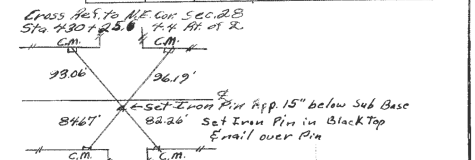 Cross Ref. to N.E. Cor. Sec. 28
Sta. 430+25.6 4.4 Rt. of ℄
C.M. C.M.
93.06' 96.19'
℄
Set Iron Pin App. 15" below Sub Base
84.67' 82.26' Set Iron Pin in Black Top
& nail over Pin
C.M. C.M.